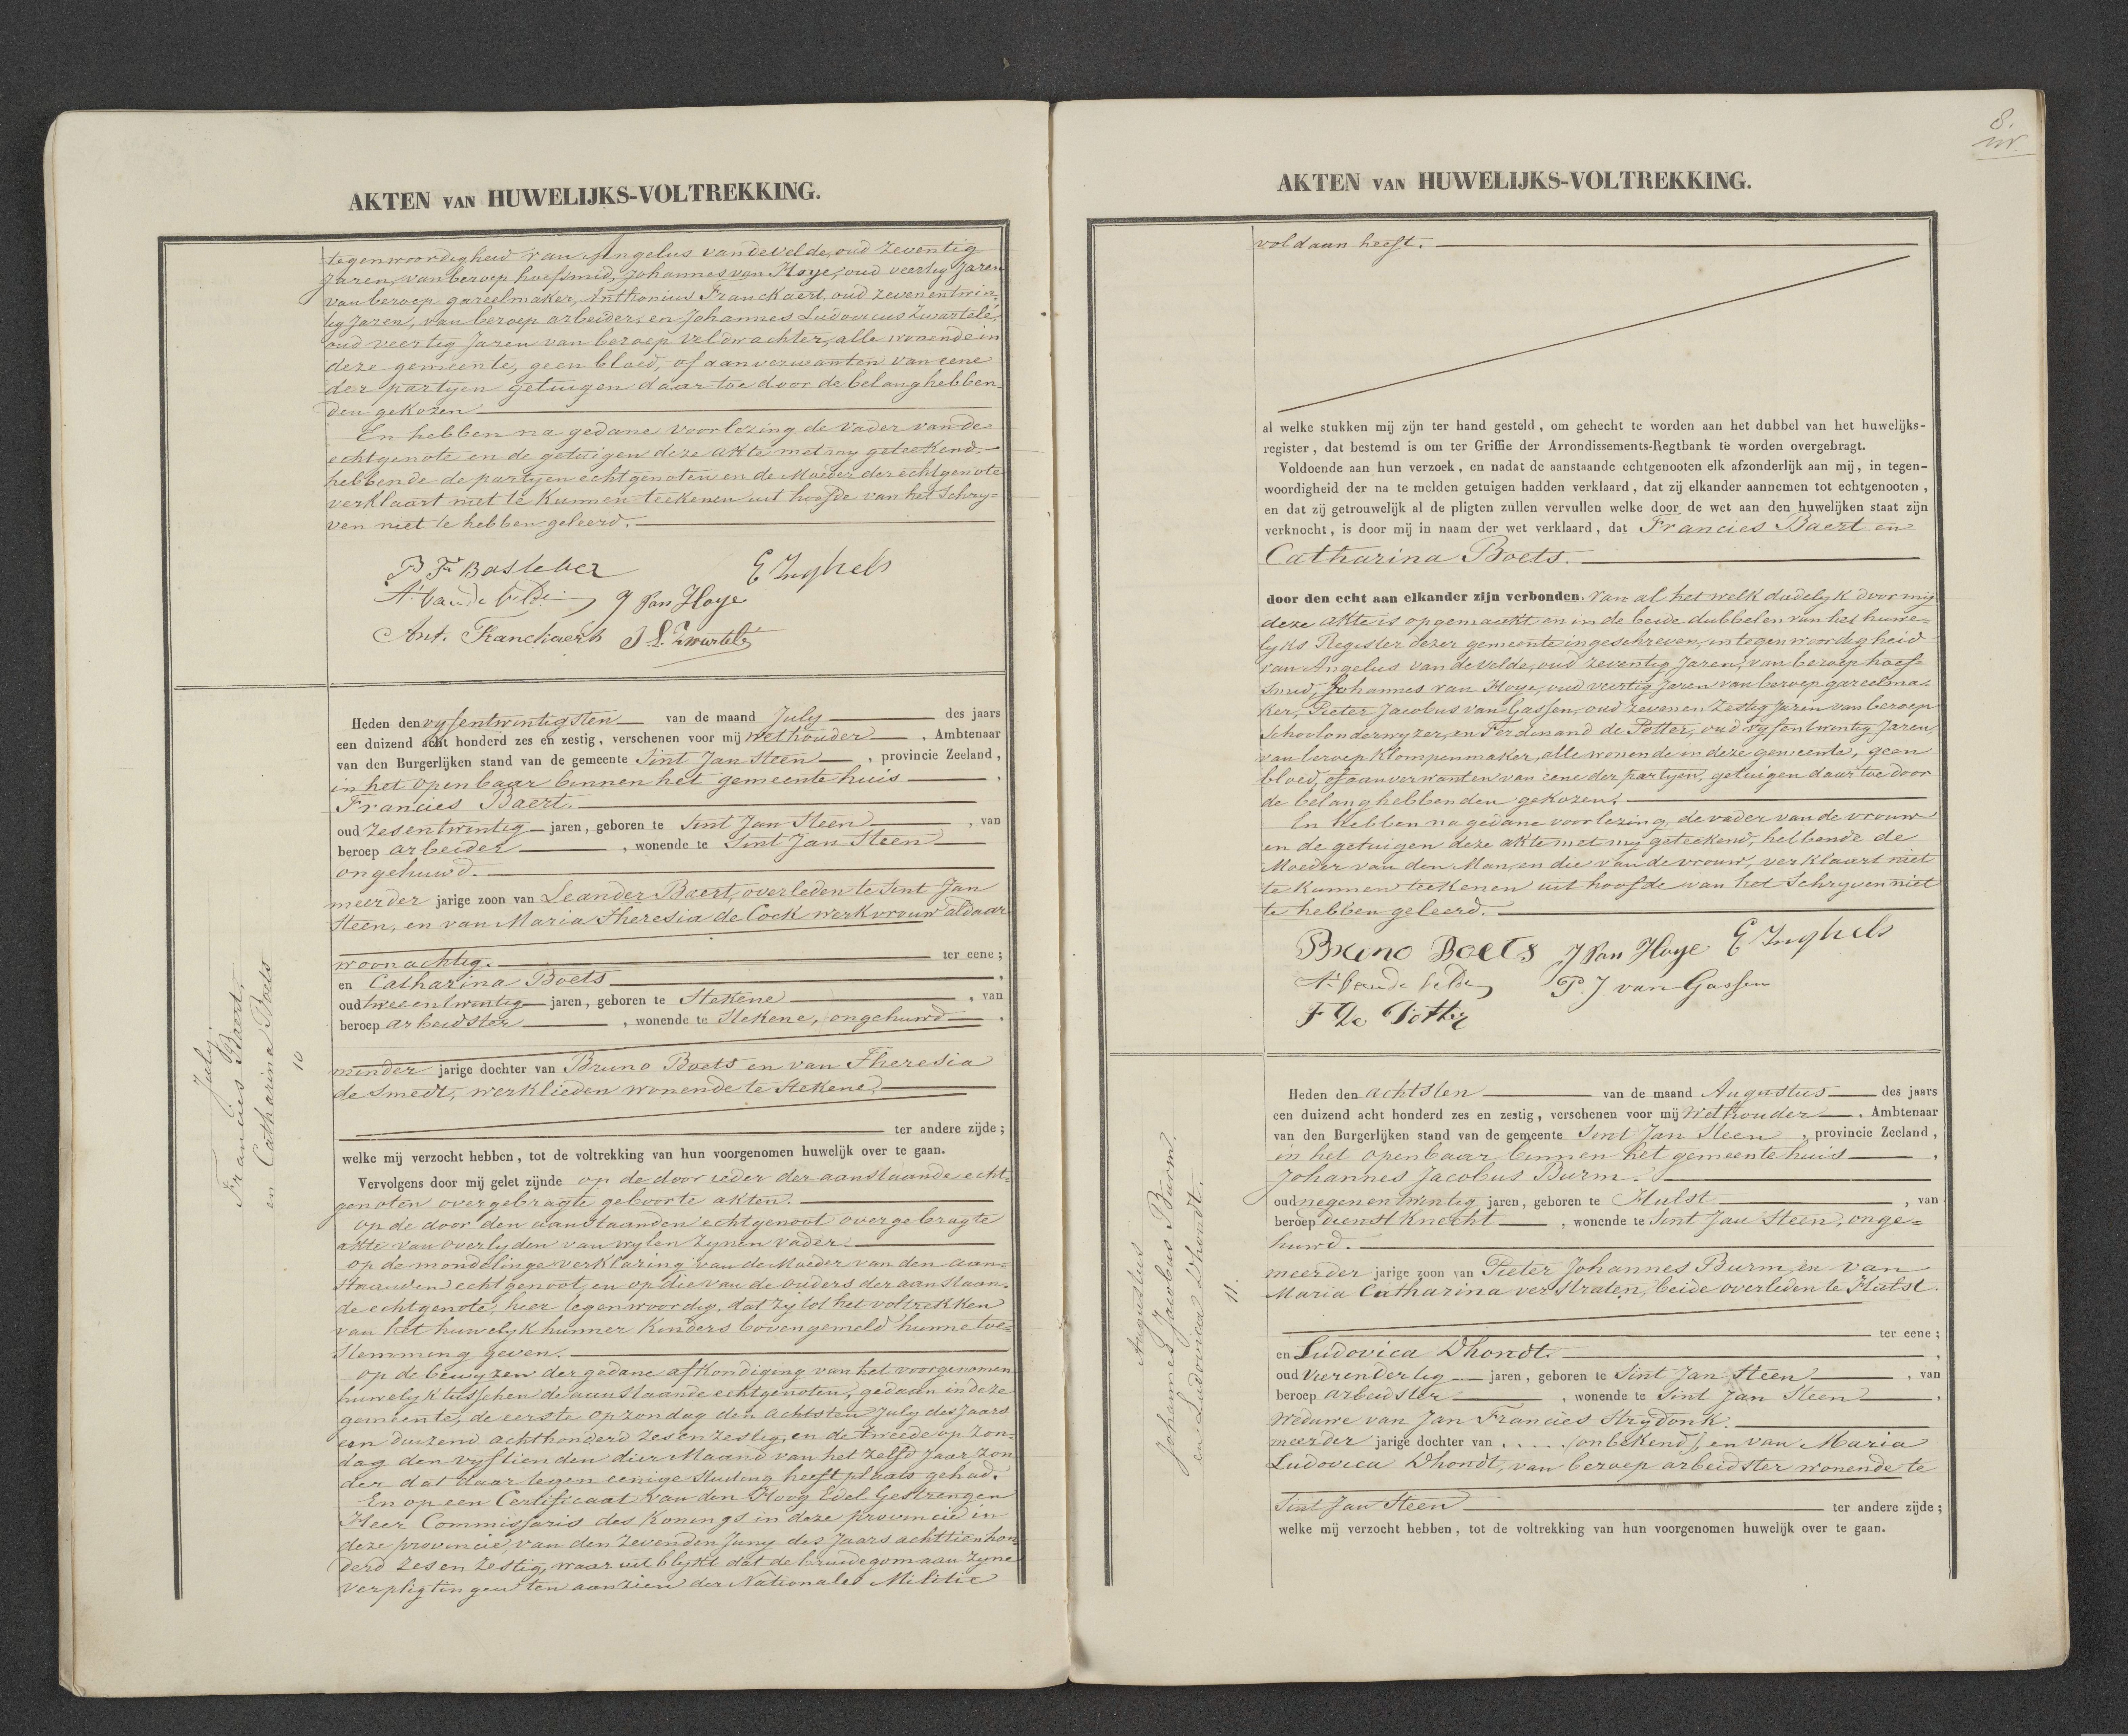 AKTEN VAN HUWELIJKS-VOLTREKKING.
tegenwoordigheid van Angelus van de Velde, oud zeventig
Jaren, van beroep hoefsmid, Johannes van Hoye, oud veertig Jaren
van beroep gareelmaker, Anthonius Franckaert, oud zevenentwin-
tig Jaren, van beroep arbeider, en Johannes Ludovicus Zwartelé,
oud veertig Jaren van beroep veldwachter, alle wonende in
deze gemeente, geen bloed, of aanverwanten van eene
der partyen getuigen daar toe door de belanghebben-
den gekozen
En hebben na gedane voorlezing de vader van de
echtgenote en de getuigen deze akte met my geteekend,
hebbende de partyen echtgenoten en de Moeder der echtgenote
verklaart niet te kunnen teekenen uit hoofde van het Schry-
ven niet te hebben geleerd.
P F Basleber E Inghels
A. van de Velde J Van Hoye
Ant. Franckaert J. L. Zwartelé
July
Francies Baert,
en Catharina Boets
10
Heden den vyfentwintigsten van de maand July des jaars
een duizend acht honderd zes en zestig, verschenen voor mij Wethouder, Ambtenaar
van den Burgerlijken stand van de gemeente Sint Jan Steen, provincie Zeeland,
in het openbaar binnen het gemeente huis,
Francies Baert.
oud zesentwintig jaren, geboren te Sint Jan Steen, van
beroep arbeider, wonende te Sint Jan Steen
ongehuwd.
meerder jarige zoon van Leander Baert, overleden te Sint Jan
Steen, en van Maria Theresia de Cock werkvrouw aldaar
woonachtig. ter eene;
en Catharina Boets,
oud tweeentwintig jaren, geboren te Stekene, van
beroep arbeidster, wonende te Stekene, ongehuwd.
minder jarige dochter van Bruno Boets en van Theresia
de Smedt, werklieden wonende te Stekene.
ter andere zijde;
welke mij verzocht hebben, tot de voltrekking van hun voorgenomen huwelijk over te gaan.
Vervolgens door mij gelet zijnde op de door ieder der aanstaande echt-
genoten overgebragte geboorte akten.
op de door den aanstaanden echtgenoot overgebragte
akte van overlyden van wylen zynen vader.
op de mondelinge verklaring van de Moeder van den aan-
staanden echtgenoot, en op die van de ouders der aanstaan-
de echtgenote, hier tegenwoordig, dat zy tot het voltrekken
van het huwelyk hunner kinders bovengemeld hunne toe-
stemming geven.
op de bewyzen der gedane afkondiging van het voorgenomen
huwelyk tusschen de aanstaande echtgenoten, gedaan in deze
gemeente, de eerste op zondag den achtsten July des Jaars
een duizend achthonderd zes en zestig, en de tweede op zon-
dag den vyftienden dier Maand van het zelfd Jaar zon
der dat daar tegen eenige stuiting heeft plaats gehad.
En op een Certificaat van den Hoog Edel Gestrengen
Heer Commissaris des Konings in deze provincie in
deze provincie, van den zevenden Juny des Jaars achttienhon-
derd zes en zestig, waar uit blykt dat de bruidegom aan zyne
verpligtingen ten aanzien der Nationale Militie
8.
AKTEN VAN HUWELIJKS-VOLTREKKING.
voldaan heeft.
al welke stukken mij zijn ter hand gesteld, om gehecht te worden aan het dubbel van het huwelijks-
register, dat bestemd is om ter Griffie der Arrondissements-Regtbank te worden overgebragt.
Voldoende aan hun verzoek, en nadat de aanstaande echtgenooten elk afzonderlijk aan mij, in tegen-
woordigheid der na te melden getuigen hadden verklaard, dat zij elkander aannemen tot echtgenooten,
en dat zij getrouwelijk al de pligten zullen vervullen welke door de wet aan den huwelijken staat zijn
verknocht, is door mij in naam der wet verklaard, dat Francies Baert en
Catharina Boets.
door den echt aan elkander zijn verbonden. Van al het welk dadelyk door my
deze akte is opgemaakt en in de beide dubbelen van het huwe-
lyks Register dezer gemeente ingeschreven, in tegenwoordigheid
van Angelus van de Velde, oud zeventig Jaren, van beroep hoef-
smid, Johannes van Hoye, oud veertig Jaren van beroep gareelma-
ker, Pieter Jacobus van Gassen, oud zeven en zestig Jaren van beroep
Schoolonderwyzer, en Ferdinand de Potter, oud vyfentwintig Jaren,
van beroep Klompenmaker, alle wonende in deze gemeente, geen
bloed, of aanverwanten van eene der partyen, getuigen daar toe door
de belanghebbenden gekozen.
En hebben na gedane voorlezing, de vader van de vrouw
en de getuigen deze akte met my geteekend, hebbende de
Moeder van den Man, en die van de vrouw, verklaart niet
te kunnen teekenen uit hoofde van het Schryven niet
te hebben geleerd.
Bruno Boets J Van Hoye E Inghels
A. van de Velde P. J van Gassen
F De Potter
Augustus
Johannes Jacobus Burm.
en Ludovica Dhondt.
11.
Heden den achtsten van de maand Augustus des jaars
een duizend acht honderd zes en zestig, verschenen voor mij Wethouder, Ambtenaar
van den Burgerlijken stand van de gemeente Sint Jan Steen, provincie Zeeland,
in het openbaar binnen het gemeente huis,
Johannes Jacobus Burm.
oud negenentwintig jaren, geboren te Hulst, van
beroep dienstknecht, wonende te Sint Jan Steen, onge-
huwd.
meerder jarige zoon van Pieter Johannes Burm, en van
Maria Catharina verstraten, beide overleden te Hulst.
ter eene;
en Ludovica Dhondt.,
oud vierendertig jaren, geboren te Sint Jan Steen, van
beroep arbeidster, wonende te Sint Jan Steen,
Weduwe van Jan Francies Strydonk.
meerder jarige dochter van . . . . (onbekend), en van Maria
Ludovica Dhondt, van beroep arbeidster wonende te
Sint Jan Steen ter andere zijde;
welke mij verzocht hebben, tot de voltrekking van hun voorgenomen huwelijk over te gaan.